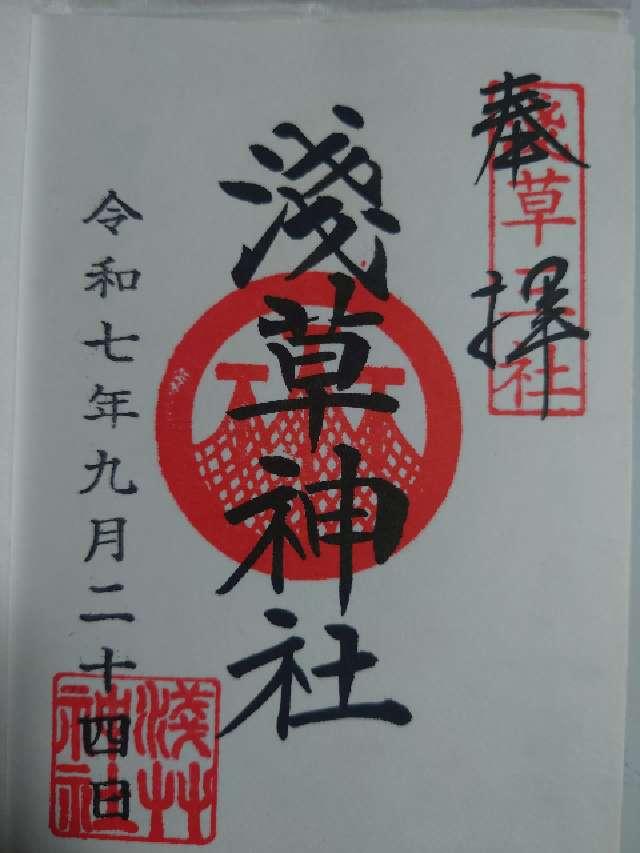 奉拝
浅草三社
淺草神社
令和七年九月二十四日
淺草神社